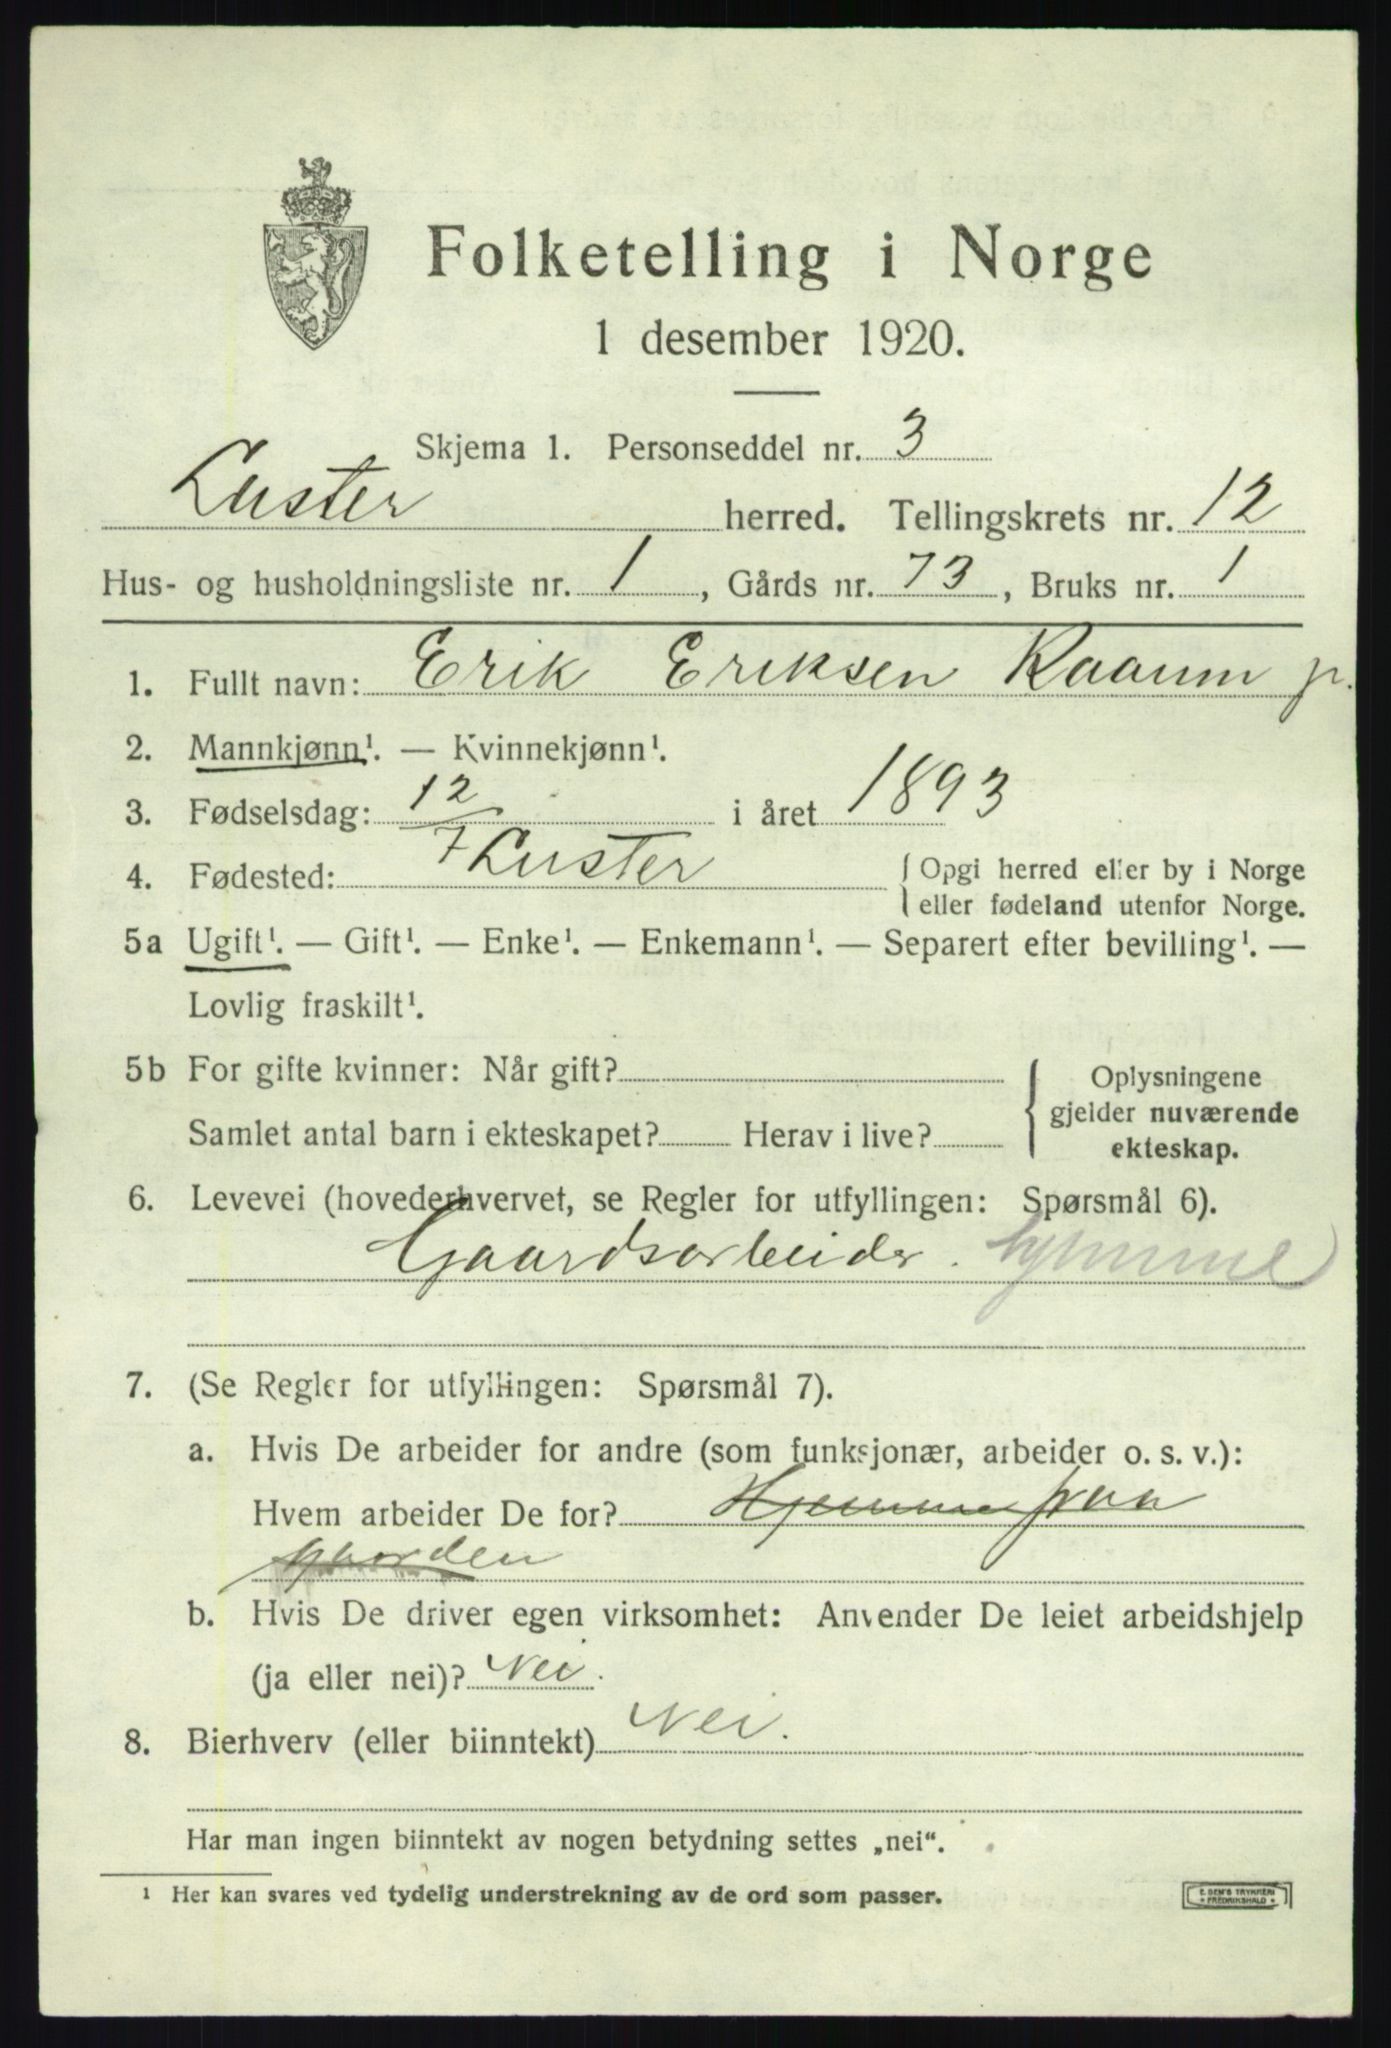 Folketelling i Norge
1 desember 1920.
Skjema 1. Personseddel nr. 3
Luster herred. Tellingskrets nr. 12
Hus- og husholdningsliste nr. 1, Gårds nr. 73, Bruks nr. 1
1. Fullt navn: Erik Eriksen Raaum jr.
2. Mannkjønn¹. — Kvinnekjønn¹.
3. Fødselsdag: 12/7 i året 1893
4. Fødested: Luster { Opgi herred eller by i Norge
eller fødeland utenfor Norge.
5a Ugift¹. — Gift¹. — Enke¹. — Enkemann¹. — Separert efter bevilling¹. —
Lovlig fraskilt¹.
5b For gifte kvinner: Når gift?
Samlet antal barn i ekteskapet? Herav i live?
{ Oplysningene
gjelder nuværende
ekteskap.
6. Levevei (hovederhvervet, se Regler for utfyllingen: Spørsmål 6).
Gaardsarbeider. hjemme
7. (Se Regler for utfyllingen: Spørsmål 7).
a. Hvis De arbeider for andre (som funksjonær, arbeider o. s. v.):
Hvem arbeider De for? Hjemme paa
gaarden
b. Hvis De driver egen virksomhet: Anvender De leiet arbeidshjelp
(ja eller nei)? Nei.
8. Bierhverv (eller biinntekt) Nei.
Har man ingen biinntekt av nogen betydning settes „nei“.
¹ Her kan svares ved tydelig understrekning av de ord som passer.
E. SEM'S TRYKKERI
* FREDRIKSHALD *